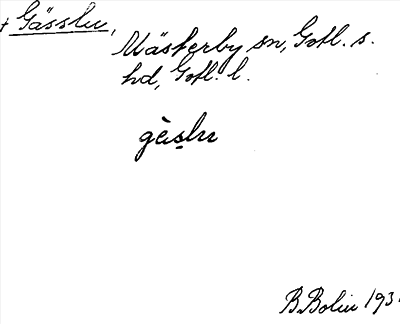 + Gässlu,
Mästerby sn, Gotl. s.
hd, Gotl. l.
gèislu
B. Bolin 193